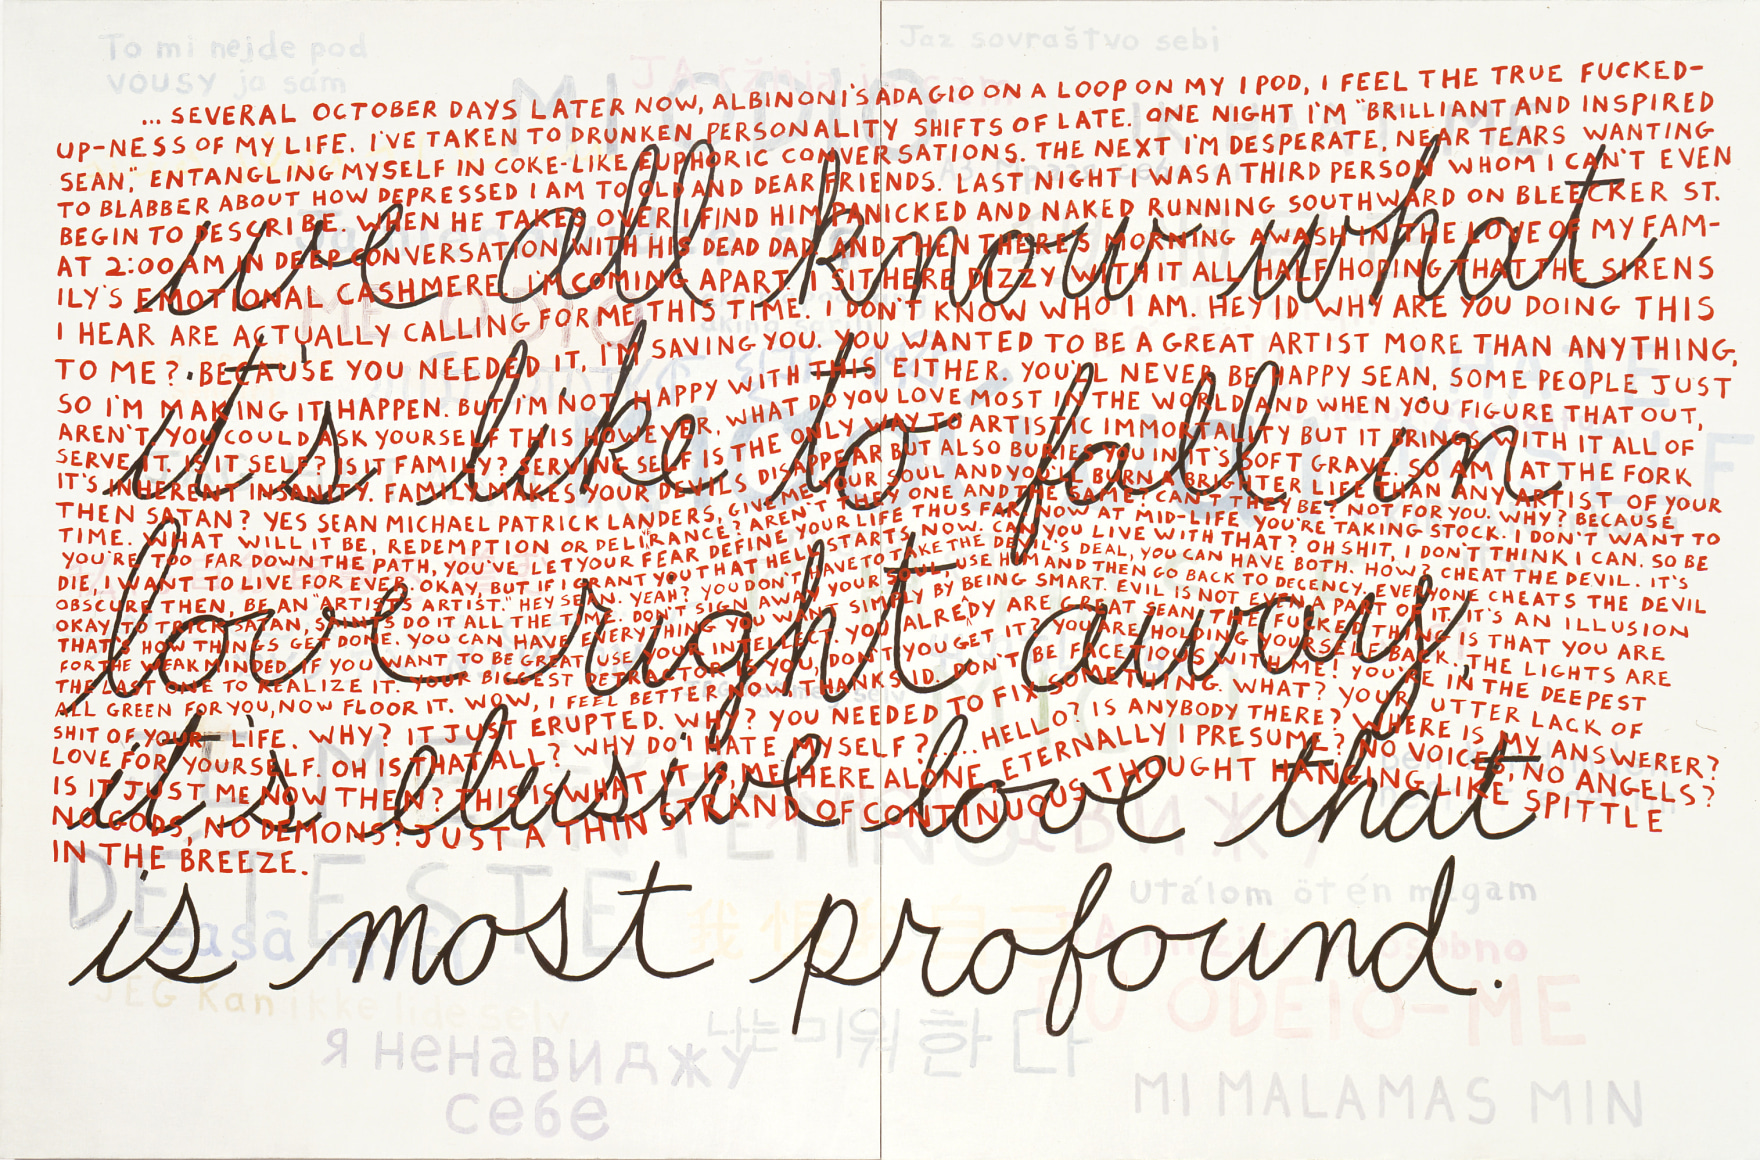 To mi nejde pod
vousy ja sám
Jaz sovraštvo sebi
MI ODIO
... SEVERAL OCTOBER DAYS LATER NOW, ALBINONI'S ADAGIO ON A LOOP ON MY IPOD, I FEEL THE TRUE FUCKED-
UP-NESS OF MY LIFE. I'VE TAKEN TO DRUNKEN PERSONALITY SHIFTS OF LATE. ONE NIGHT I'M "BRILLIANT AND INSPIRED
SEAN," ENTANGLING MYSELF IN COKE-LIKE EUPHORIC CONVERSATIONS. THE NEXT I'M DESPERATE, NEAR TEARS WANTING
TO BLABBER ABOUT HOW DEPRESSED I AM TO OLD AND DEAR FRIENDS. LAST NIGHT I WAS A THIRD PERSON WHOM I CAN'T EVEN
BEGIN TO DESCRIBE. WHEN HE TAKES OVER I FIND HIM PANICKED AND NAKED RUNNING SOUTHWARD ON BLEECKER ST.
AT 2:00 AM IN DEEP CONVERSATION WITH HIS DEAD DAD. AND THEN THERE'S MORNING AWASH IN THE LOVE OF MY FAM-
ILY'S EMOTIONAL CASHMERE. I'M COMING APART. I SIT HERE DIZZY WITH IT ALL HALF HOPING THAT THE SIRENS
I HEAR ARE ACTUALLY CALLING FOR ME THIS TIME. I DON'T KNOW WHO I AM. HEY ID WHY ARE YOU DOING THIS
TO ME? BECAUSE YOU NEEDED IT, I'M SAVING YOU. YOU WANTED TO BE A GREAT ARTIST MORE THAN ANYTHING,
SO I'M MAKING IT HAPPEN. BUT I'M NOT HAPPY WITH THIS EITHER. YOU'LL NEVER BE HAPPY SEAN, SOME PEOPLE JUST
AREN'T, YOU COULD ASK YOURSELF THIS HOWEVER, WHAT DO YOU LOVE MOST IN THE WORLD AND WHEN YOU FIGURE THAT OUT,
SERVE IT. IS IT SELF? IS IT FAMILY? SERVING SELF IS THE ONLY WAY TO ARTISTIC IMMORTALITY BUT IT BRINGS WITH IT ALL OF
IT'S INHERENT INSANITY. FAMILY MAKES YOUR DEVILS DISAPPEAR BUT ALSO BURIES YOU IN IT'S SOFT GRAVE. SO AM I AT THE FORK
THEN SATAN? YES SEAN MICHAEL PATRICK LANDERS, GIVE ME YOUR SOUL AND YOU'LL BURN A BRIGHTER LIFE THAN ANY ARTIST OF YOUR
TIME. WHAT WILL IT BE, REDEMPTION OR DELIRANCE? AREN'T THEY ONE AND THE SAME? CAN'T THEY BE? NOT FOR YOU. WHY? BECAUSE
YOU'RE TOO FAR DOWN THE PATH, YOU'VE LET YOUR FEAR DEFINE YOUR LIFE THUS FAR. NOW AT MID-LIFE YOU'RE TAKING STOCK. I DON'T WANT TO
DIE, I WANT TO LIVE FOR EVER. OKAY, BUT IF I GRANT YOU THAT HELL STARTS NOW. CAN YOU LIVE WITH THAT? OH SHIT, I DON'T THINK I CAN. SO BE
OBSCURE THEN, BE AN "ARTISTS ARTIST." HEY SEAN. YEAH? YOU DON'T HAVE TO TAKE THE DEVIL'S DEAL, YOU CAN HAVE BOTH. HOW? CHEAT THE DEVIL. IT'S
OKAY TO TRICK SATAN, SAINTS DO IT ALL THE TIME. DON'T SIGN AWAY YOUR SOUL, USE HIM AND THEN GO BACK TO DECENCY, EVERYONE CHEATS THE DEVIL
THAT'S HOW THINGS GET DONE. YOU CAN HAVE EVERYTHING YOU WANT SIMPLY BY BEING SMART. EVIL IS NOT EVEN A PART OF IT. IT'S AN ILLUSION
FOR THE WEAK MINDED. IF YOU WANT TO BE GREAT USE YOUR INTELLECT. YOU ALREADY ARE GREAT SEAN, THE FUCKED THING IS THAT YOU ARE
THE LAST ONE TO REALIZE IT. YOUR BIGGEST DETRACTOR IS YOU, DON'T YOU GET IT? YOU ARE HOLDING YOURSELF BACK. THE LIGHTS ARE
ALL GREEN FOR YOU, NOW FLOOR IT. WOW, I FEEL BETTER NOW, THANKS ID. DON'T BE FACETIOUS WITH ME! YOU'RE IN THE DEEPEST
SHIT OF YOUR LIFE. WHY? IT JUST ERUPTED. WHY? YOU NEEDED TO FIX SOMETHING. WHAT? YOUR UTTER LACK OF
LOVE FOR YOURSELF. OH IS THAT ALL? WHY DO I HATE MYSELF?.....HELLO? IS ANYBODY THERE? WHERE IS MY ANSWERER?
IS IT JUST ME NOW THEN? THIS IS WHAT IT IS, ME HERE ALONE ETERNALLY I PRESUME? NO VOICES, NO ANGELS?
NO GODS, NO DEMONS? JUST A THIN STRAND OF CONTINUOUS THOUGHT HANGING LIKE SPITTLE
IN THE BREEZE.
we all know what
it's like to fall in
love right away,
it's elusive love that
is most profound.
ME ODIO
DETESTE
我恨我自己
Utálom öt én magam
JEG Kan ikke lide selv
EU ODEIO-ME
나는 미워한다
я ненавиджу
себе
MI MALAMAS MIN